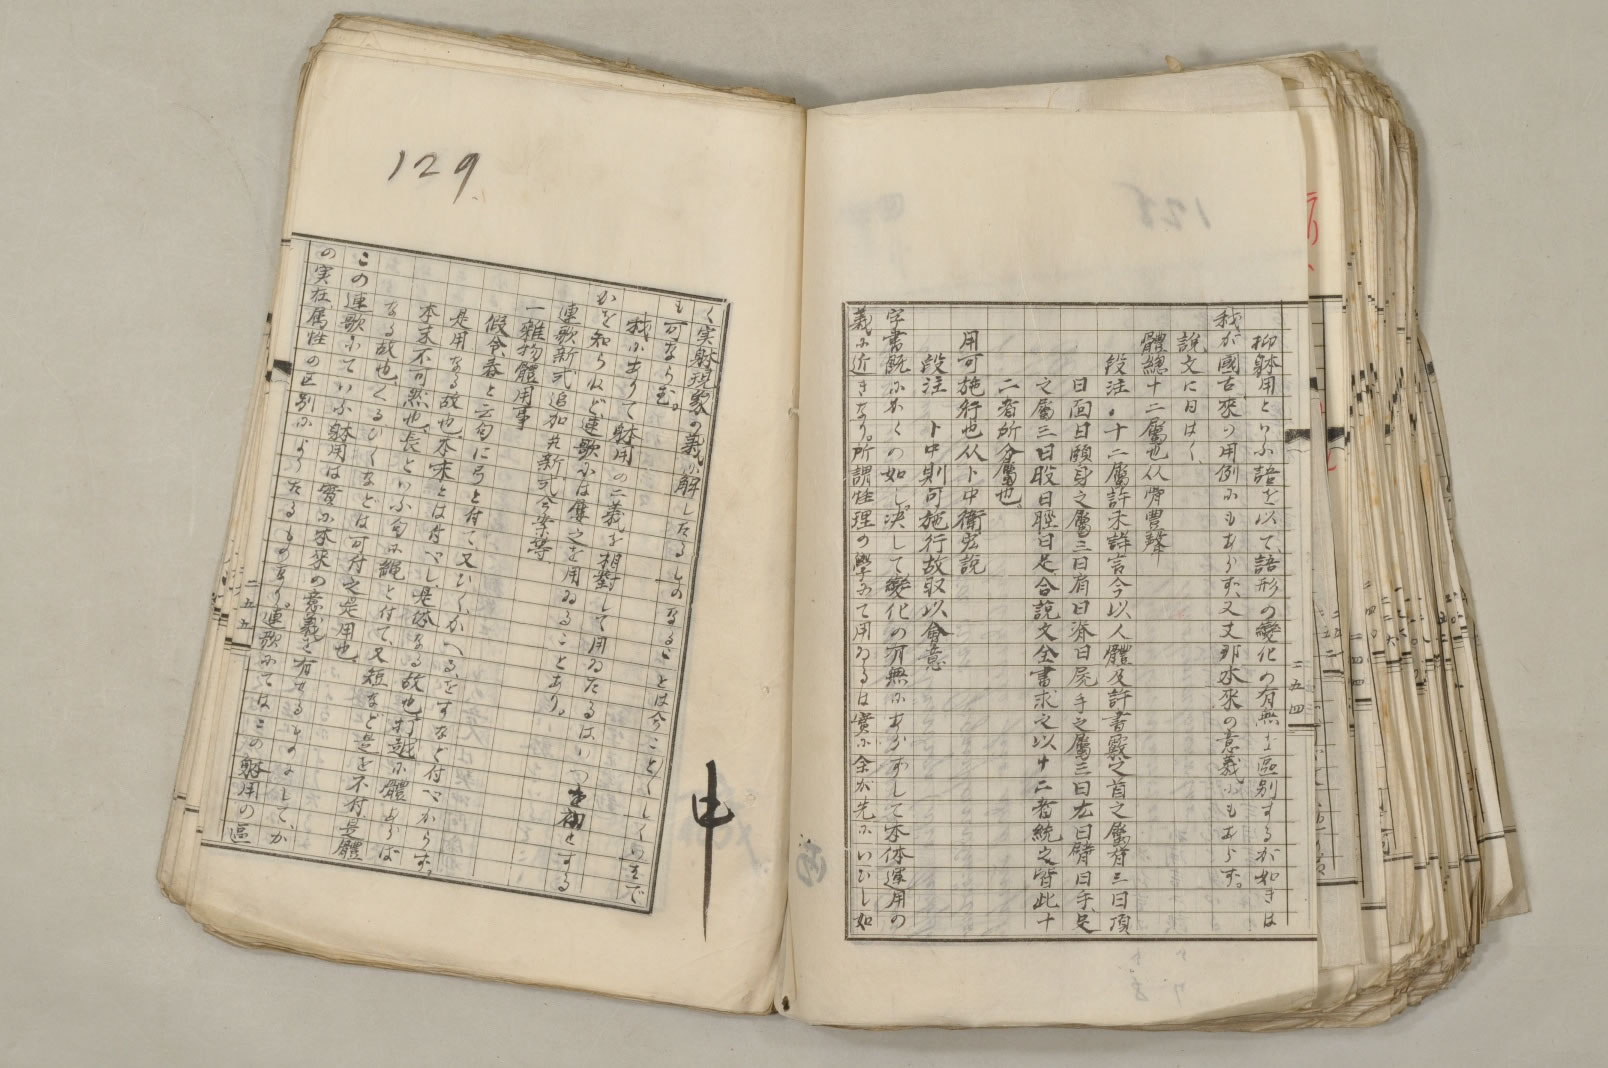 抑躰用といふ語を以て、語形の變化の有無を區別するが如きは
我が國古來の用例にもあらず、又支那本來の意義にもあらず。
説文に曰はく、
體總十二屬也从骨豊聲
段注。十二屬許未詳言今以人體及許書覈之首之屬有三曰頂
曰面曰頤身之屬三曰肩曰脊曰尻手之屬三曰厷曰臂曰手足
之屬三曰股曰脛曰足合説文全書求之以十二者統之皆此十
二者所分屬也。
用可施行也从卜中衞宏説
段注 卜中則可施行故取以會意
字書既にかくの如し。决して變化の有無にあらずして本体運用の
義に近きなり。所謂性理の學にて用ゐるは實に余が先にいひし如
二五四
129
く実躰現象の義に解したるものなることは今ことごとしくいふまで
も可ならむ。
我に出りて躰用の二義を相對して用ゐたるはいつを初とする
かを知らねど連歌には屡之を用ゐることあり。
連歌新式追加并新式今案等
一雑物體用事
假令春と云句に弓と付て又ひくかへるをすなど付べからず。
是用なる故也、本末とは付べし是體なる故也、打越に體あらば
本末不可然也、長といふ句に縄と付て又短など是を不付是體
なる故也、くるひくなどは可付之是用也、
この連歌にていふ躰用は實に本來の意義を有せるものにしてか
の実在、属性の区別によりたるものなり。連歌にてはこの躰用の區
二五五
申